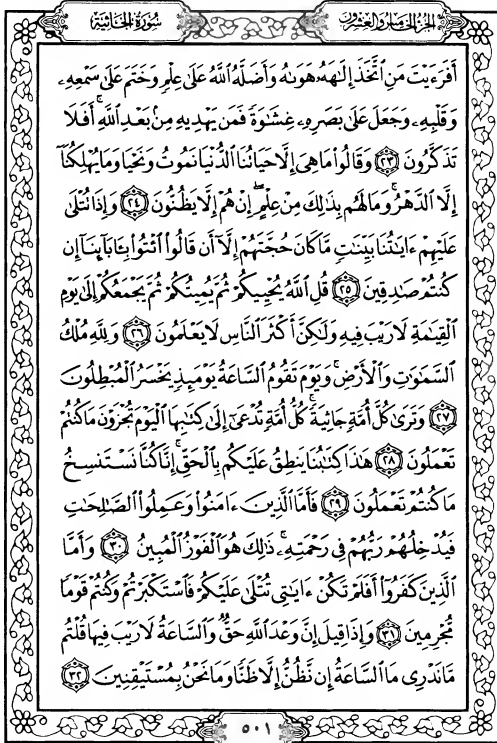 الجزء الخامس والعشرون
سورة الجاثية
أَفَرَءَيْتَ مَنِ ٱتَّخَذَ إِلَٰهَهُۥ هَوَىٰهُ وَأَضَلَّهُ ٱللَّهُ عَلَىٰ عِلْمٍ وَخَتَمَ عَلَىٰ سَمْعِهِۦ
وَقَلْبِهِۦ وَجَعَلَ عَلَىٰ بَصَرِهِۦ غِشَٰوَةً فَمَن يَهْدِيهِ مِنۢ بَعْدِ ٱللَّهِ ۚ أَفَلَا
تَذَكَّرُونَ ٢٣ وَقَالُوا۟ مَا هِىَ إِلَّا حَيَاتُنَا ٱلدُّنْيَا نَمُوتُ وَنَحْيَا وَمَا يُهْلِكُنَآ
إِلَّا ٱلدَّهْرُ ۚ وَمَا لَهُم بِذَٰلِكَ مِنْ عِلْمٍ ۖ إِنْ هُمْ إِلَّا يَظُنُّونَ ٢٤ وَإِذَا تُتْلَىٰ
عَلَيْهِمْ ءَايَٰتُنَا بَيِّنَٰتٍ مَّا كَانَ حُجَّتَهُمْ إِلَّآ أَن قَالُوا۟ ٱئْتُوا۟ بِـَٔابَآئِنَآ إِن
كُنتُمْ صَٰدِقِينَ ٢٥ قُلِ ٱللَّهُ يُحْيِيكُمْ ثُمَّ يُمِيتُكُمْ ثُمَّ يَجْمَعُكُمْ إِلَىٰ يَوْمِ
ٱلْقِيَٰمَةِ لَا رَيْبَ فِيهِ وَلَٰكِنَّ أَكْثَرَ ٱلنَّاسِ لَا يَعْلَمُونَ ٢٦ وَلِلَّهِ مُلْكُ
ٱلسَّمَٰوَٰتِ وَٱلْأَرْضِ ۚ وَيَوْمَ تَقُومُ ٱلسَّاعَةُ يَوْمَئِذٍ يَخْسَرُ ٱلْمُبْطِلُونَ
٢٧ وَتَرَىٰ كُلَّ أُمَّةٍ جَاثِيَةً ۚ كُلُّ أُمَّةٍ تُدْعَىٰٓ إِلَىٰ كِتَٰبِهَا ٱلْيَوْمَ تُجْزَوْنَ مَا كُنتُمْ
تَعْمَلُونَ ٢٨ هَٰذَا كِتَٰبُنَا يَنطِقُ عَلَيْكُم بِٱلْحَقِّ ۚ إِنَّا كُنَّا نَسْتَنسِخُ
مَا كُنتُمْ تَعْمَلُونَ ٢٩ فَأَمَّا ٱلَّذِينَ ءَامَنُوا۟ وَعَمِلُوا۟ ٱلصَّٰلِحَٰتِ
فَيُدْخِلُهُمْ رَبُّهُمْ فِى رَحْمَتِهِۦ ۚ ذَٰلِكَ هُوَ ٱلْفَوْزُ ٱلْمُبِينُ ٣٠ وَأَمَّا
ٱلَّذِينَ كَفَرُوٓا۟ أَفَلَمْ تَكُنْ ءَايَٰتِى تُتْلَىٰ عَلَيْكُمْ فَٱسْتَكْبَرْتُمْ وَكُنتُمْ قَوْمًا
مُّجْرِمِينَ ٣١ وَإِذَا قِيلَ إِنَّ وَعْدَ ٱللَّهِ حَقٌّ وَٱلسَّاعَةُ لَا رَيْبَ فِيهَا قُلْتُم
مَّا نَدْرِى مَا ٱلسَّاعَةُ إِن نَّظُنُّ إِلَّا ظَنًّا وَمَا نَحْنُ بِمُسْتَيْقِنِينَ ٣٢
٥٠١